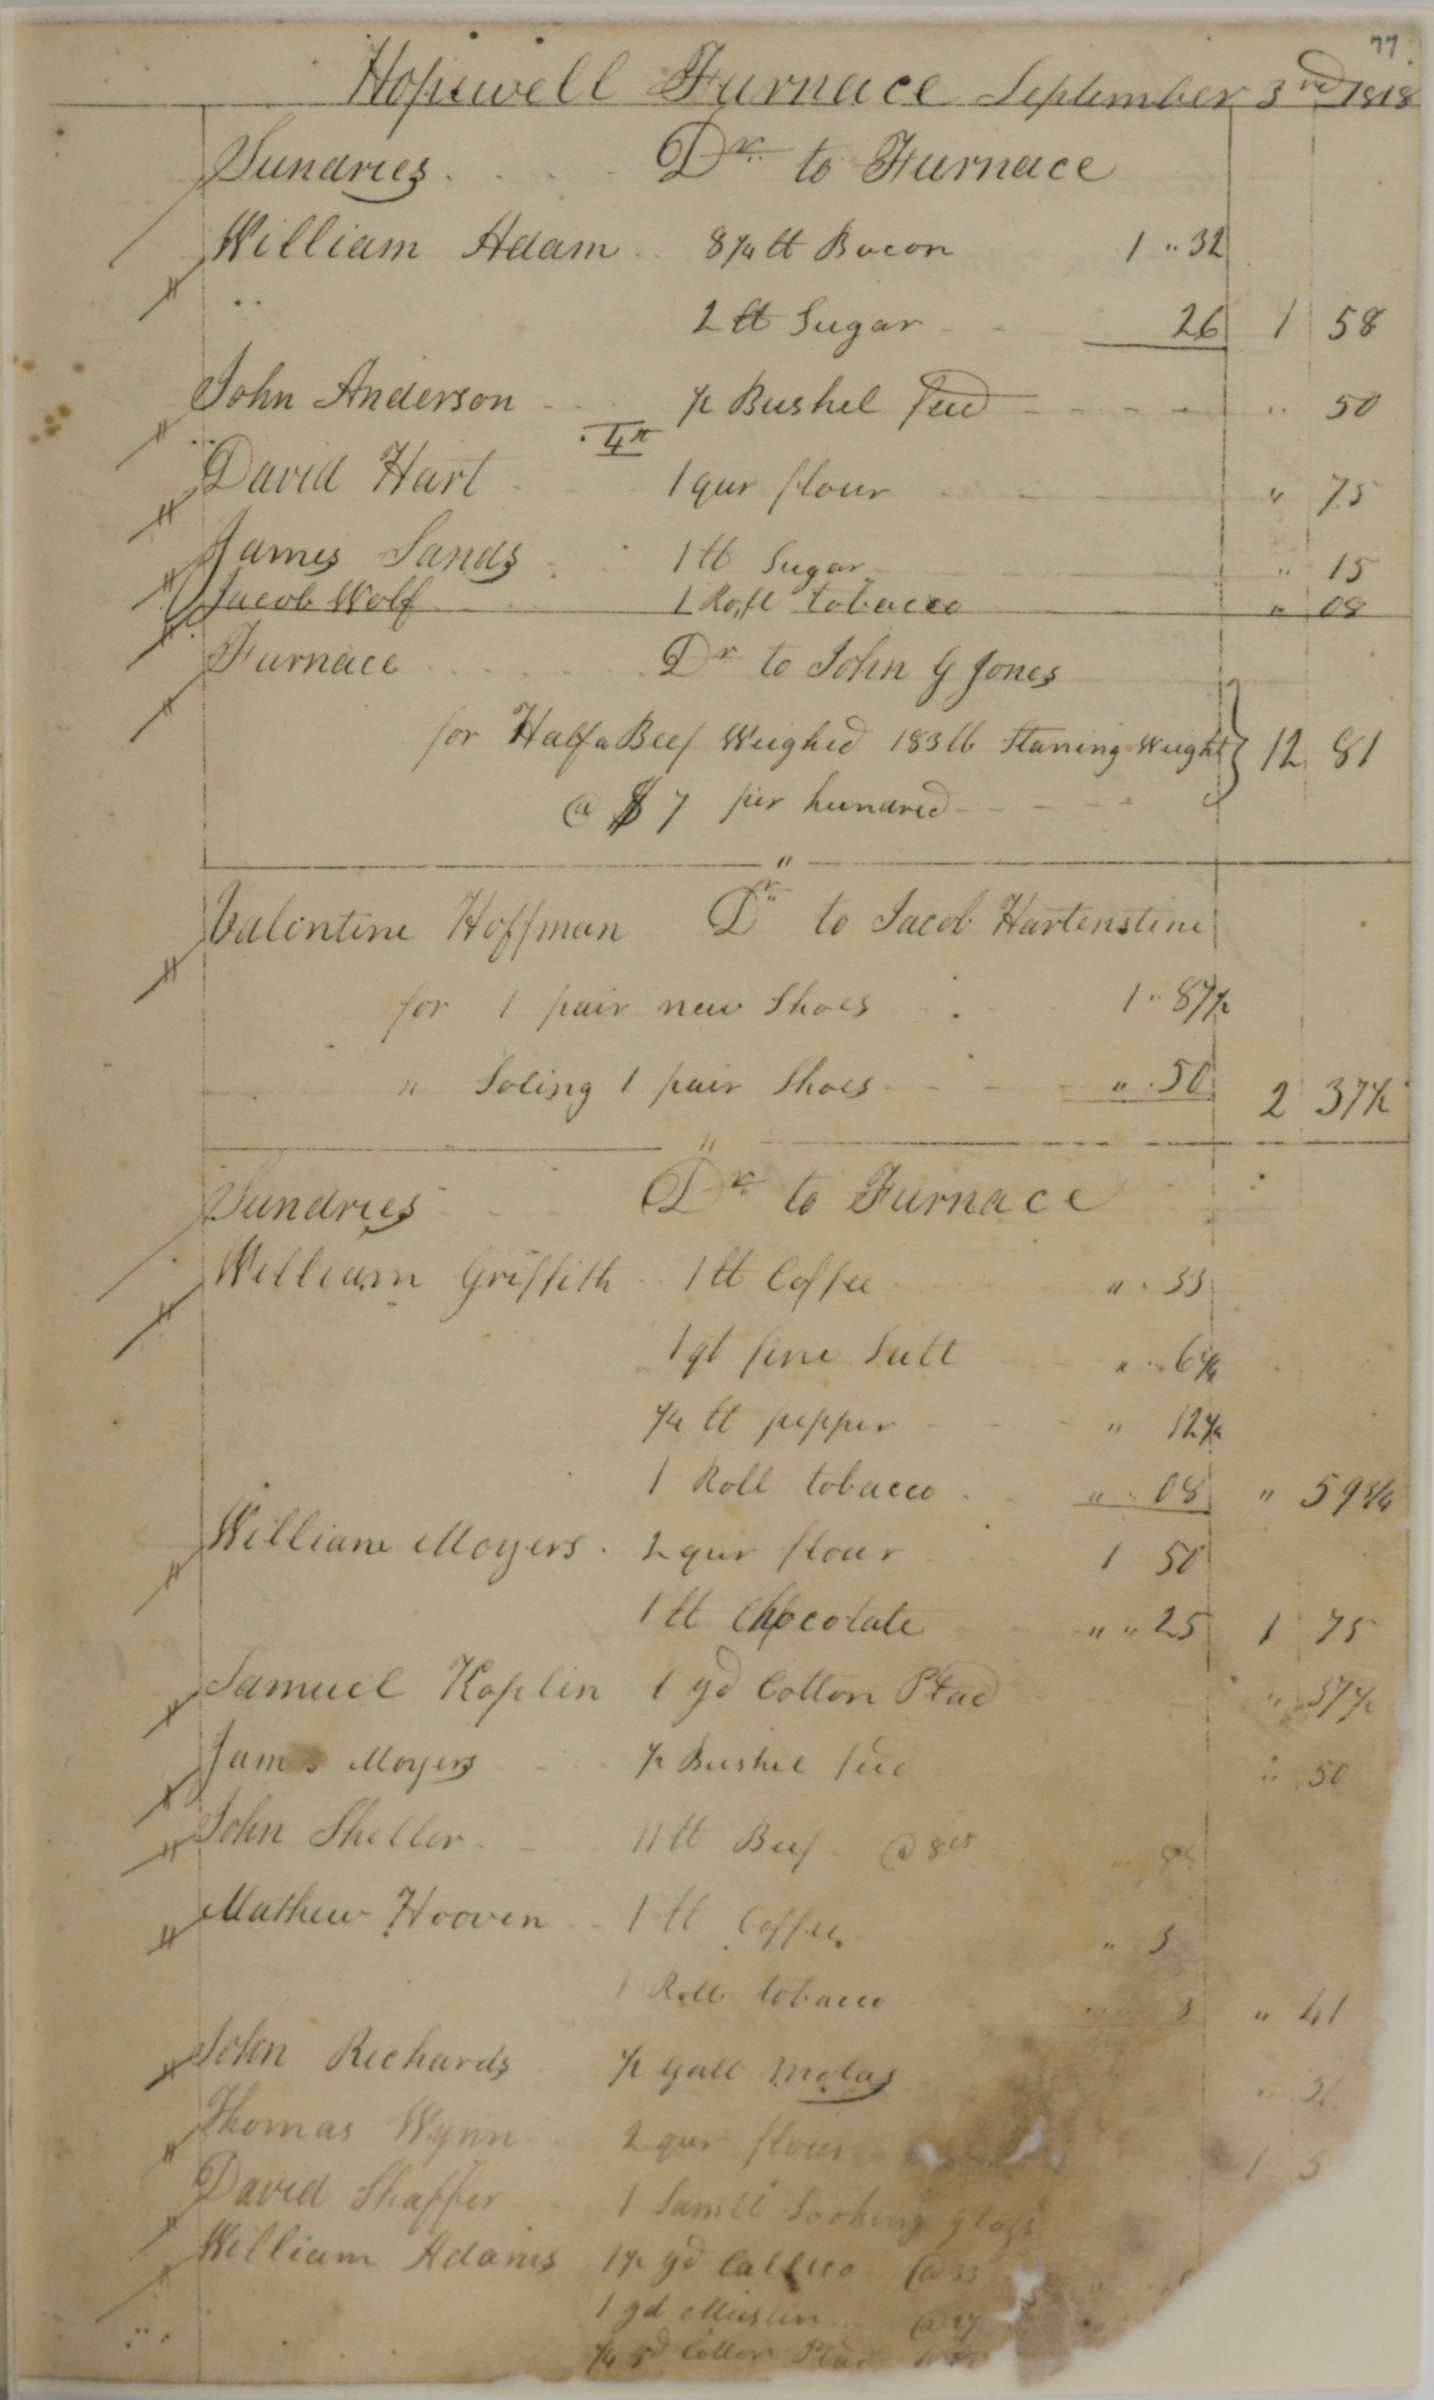 77
Hopewell Furnace September 3rd 1818
Sundries Dr. to Furnace
William Adam 8 1/4 lb Bacon 1 " 32
2 lb Sugar 26 1 58
John Anderson 1/2 Bushel feed " 50
4th
David Hart 1 qur flour " 75
James Sands 1 lb Sugar " 15
Jacob Wolf 1 Roll tobacco " 08
Furnace Dr to John G Jones
for Half a Beef Weighed 183 lb Weight 12 81
@ $ 7 per hundred
"
Valentine Hoffman Dr to Jacob Hartenstine
for 1 pair new Shoes 1 " 87 1/2
" Soling 1 pair Shoes " 50 2 37 1/2
"
Sundries Dr. to Furnace
William Griffith 1 lb Coffee " 33
1 qt fine Salt " 6 1/4
1/4 lb pepper " 12 1/2
1 Roll tobacco " 08 " 59 3/4
William Moyers 2 qur flour 1 50
1 lb Chocolate " " 25 1 75
Samuel Koplin 1 yd Cotton Plad " 37 1/2
James Moyers 1/2 Bushel feed " 50
John Sheller 11 lb Beef @ 8 cts
Mathew Hooven 1 lb Coffee " 3
1 Roll tobacco " 41
John Richards 1/2 Gall Molas
Thomas Wynn 2 qur flour 1 5
David Shaffer 1 Samll Looking Glass
William Adams 1 1/2 yd Callico @ 33
1 yd Muslin @
1/4 yd Cotton Plad